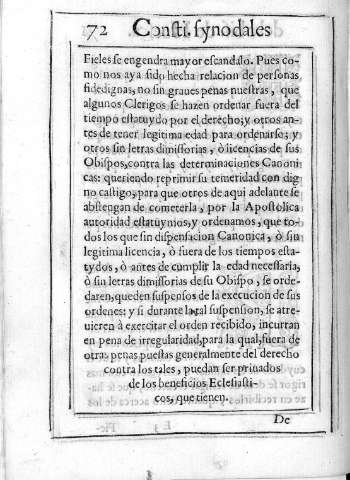 72 Consti. synodales
Fieles se engendra mayor escandalo. Pues co-
mo nos aya sido hecha relacion de personas
fidedignas, no sin graues penas nuestras, que
algunos Clerigos se hazen ordenar fuera del
tiempo estatuydo por el derecho; y otros an-
tes de tener legitima edad para ordenarse; y
otros sin letras dimissorias, ò licencias de sus
Obispos, contra las determinaciones Canoni
cas: queriendo reprimir su temeridad con dig
no castigo, para que otros de aqui adelante se
abstengan de cometerla, por la Apostolica
autoridad estatuymos, y ordenamos, que to-
dos los que sin dispensacion Canonica, ò sin
legitima licencia, ò fuera de los tiempos esta-
tydos, ò antes de cumplir la edad necessaria,
ò sin letras dimissorias de su Obispo, se orde-
daren, queden suspensos de la execucion de sus
ordenes: y si durante la tal suspension, se atre-
uieren à exercitar el orden recibido, incurran
en pena de irregularidad, para la qual, fuera de
otras penas puestas generalmente del derecho
contra los tales, puedan ser priuados
de los beneficios Eclesiasti-
cos, que tienen.
De